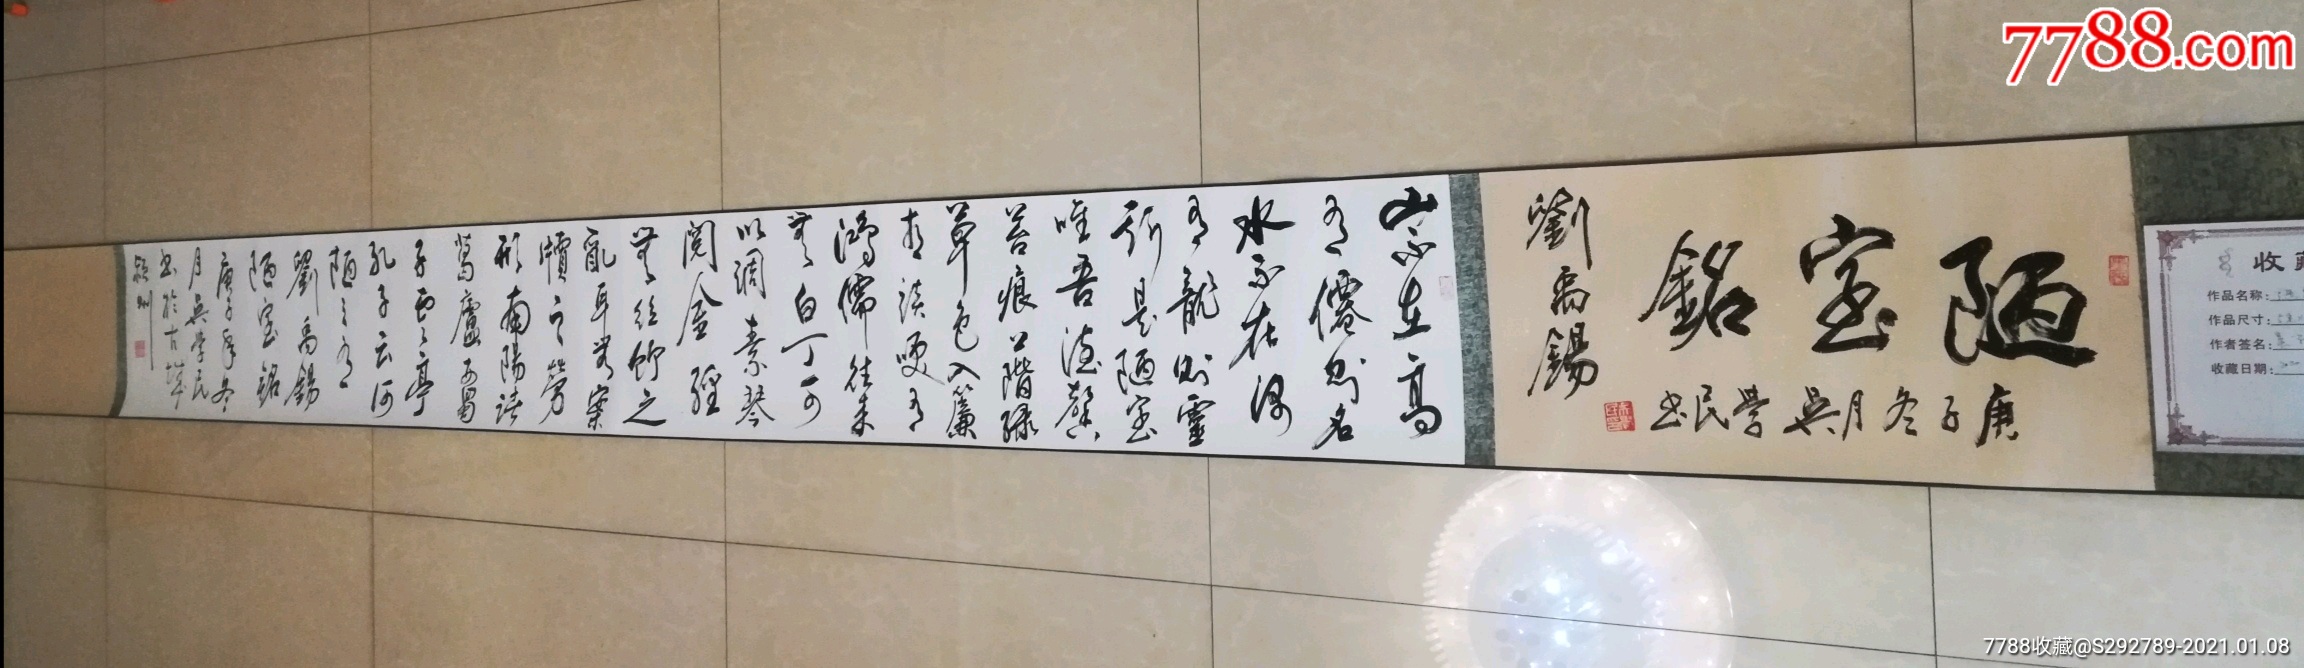 7788.com
陋室銘
庚子冬月吳學民書
劉禹錫
山不在高
有僊則名
水不在深
有龍則靈
斯是陋室
唯吾德馨
苔痕上階綠
草色入簾
青談笑有
鴻儒往來
無白丁可
以調素琴
閱金經
無絲竹之
亂耳無案
牘之勞
形南陽諸
葛廬西蜀
子云亭
孔子云何
陋之有
劉禹錫
陋室銘
庚子年冬
月吳學民
書於古城
收藏
作品名称:
作品尺寸:
作者签名:
收藏日期:
7788收藏@S292789-2021.01.08